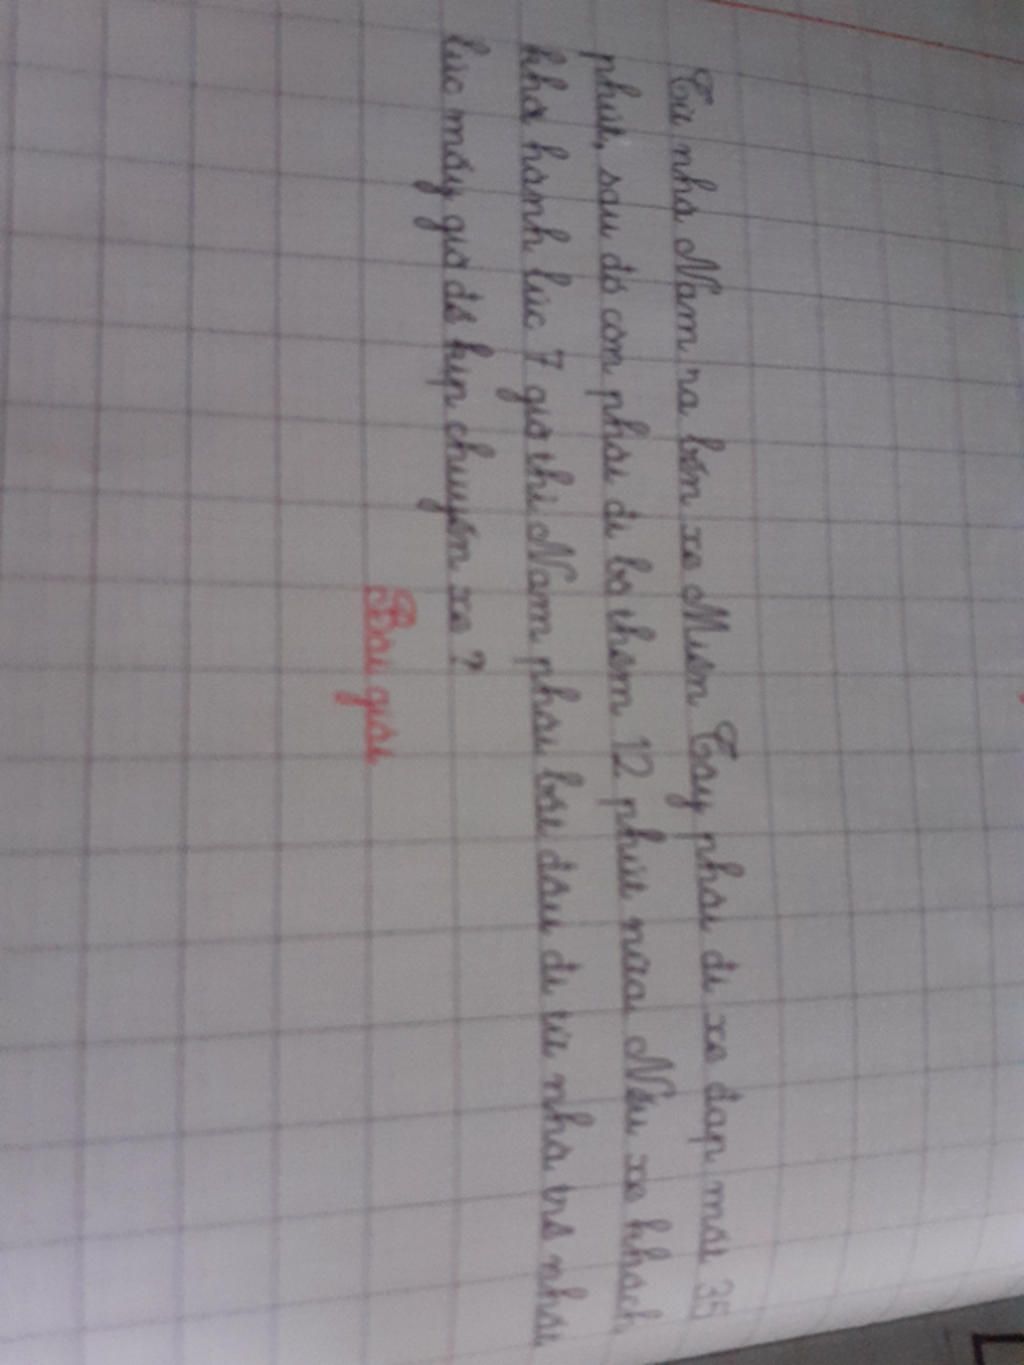 Từ nhà Nam ra bến xe Miền Tây phải đi xe đạp mất 35
phút, sau đó còn phải đi bộ thêm 12 phút nữa. Nếu xe khách
khởi hành lúc 7 giờ thì Nam phải bắt đầu đi từ nhà trễ nhất
lúc mấy giờ để kịp chuyến xe?
Bài giải